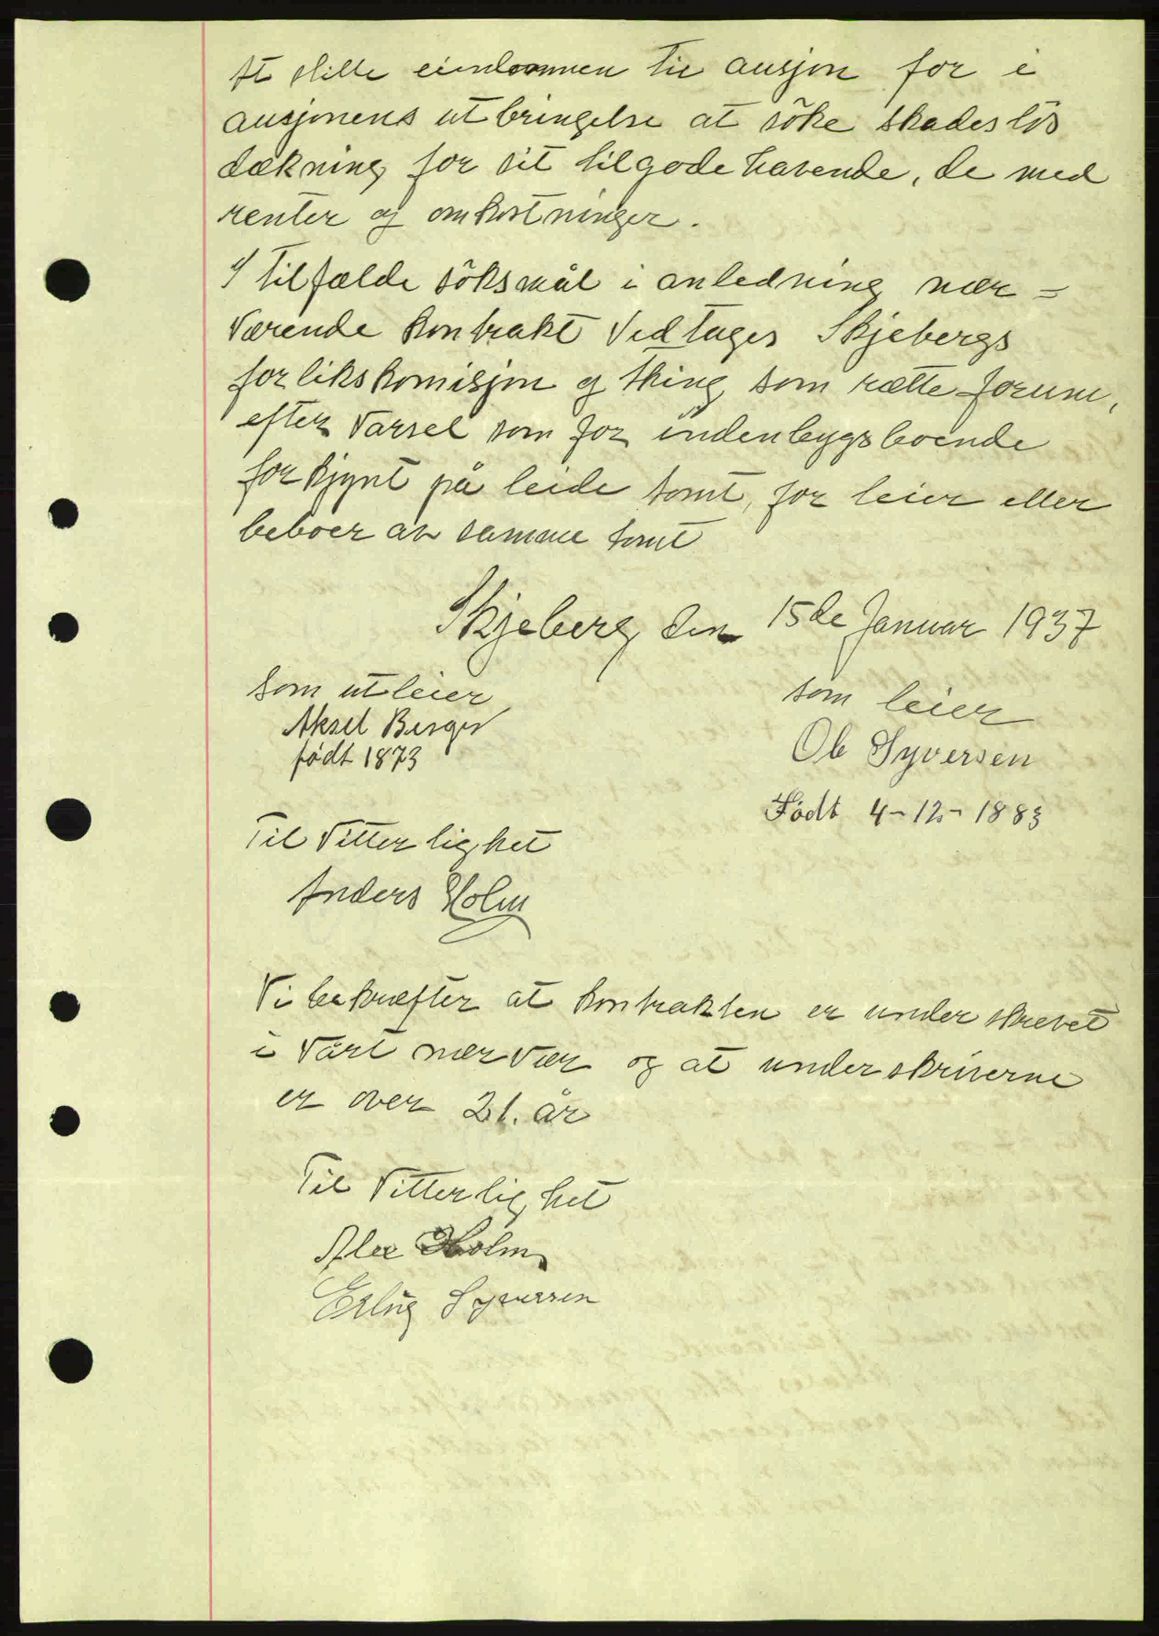 At stille eiendommen til ausjon for i
ausjonens utbringelse at söke skadeslös
dækning for sit tilgodehavende, de med
renter og omkostninger.
I tilfælde söksmål i anledning nær=
værende kontrakt vedtages Skjebergs
forlikskomisjon og thing som rætte forum,
efter varsel som for indenbygsboende
forkjynt på leide tomt, for leier eller
beboer av samme tomt
Skjeberg den 15de Januar 1937
som utleier som leier
Aksel Berger Ole Syversen
født 1873 Født 4-12-1883
Til Vitterlighet
Anders Holm
Vi bekræfter at kontrakten er underskrevet
i vårt nærvær og at underskriverne
er over 21. år
Til Vitterlighet
Holm
Erling Syversen